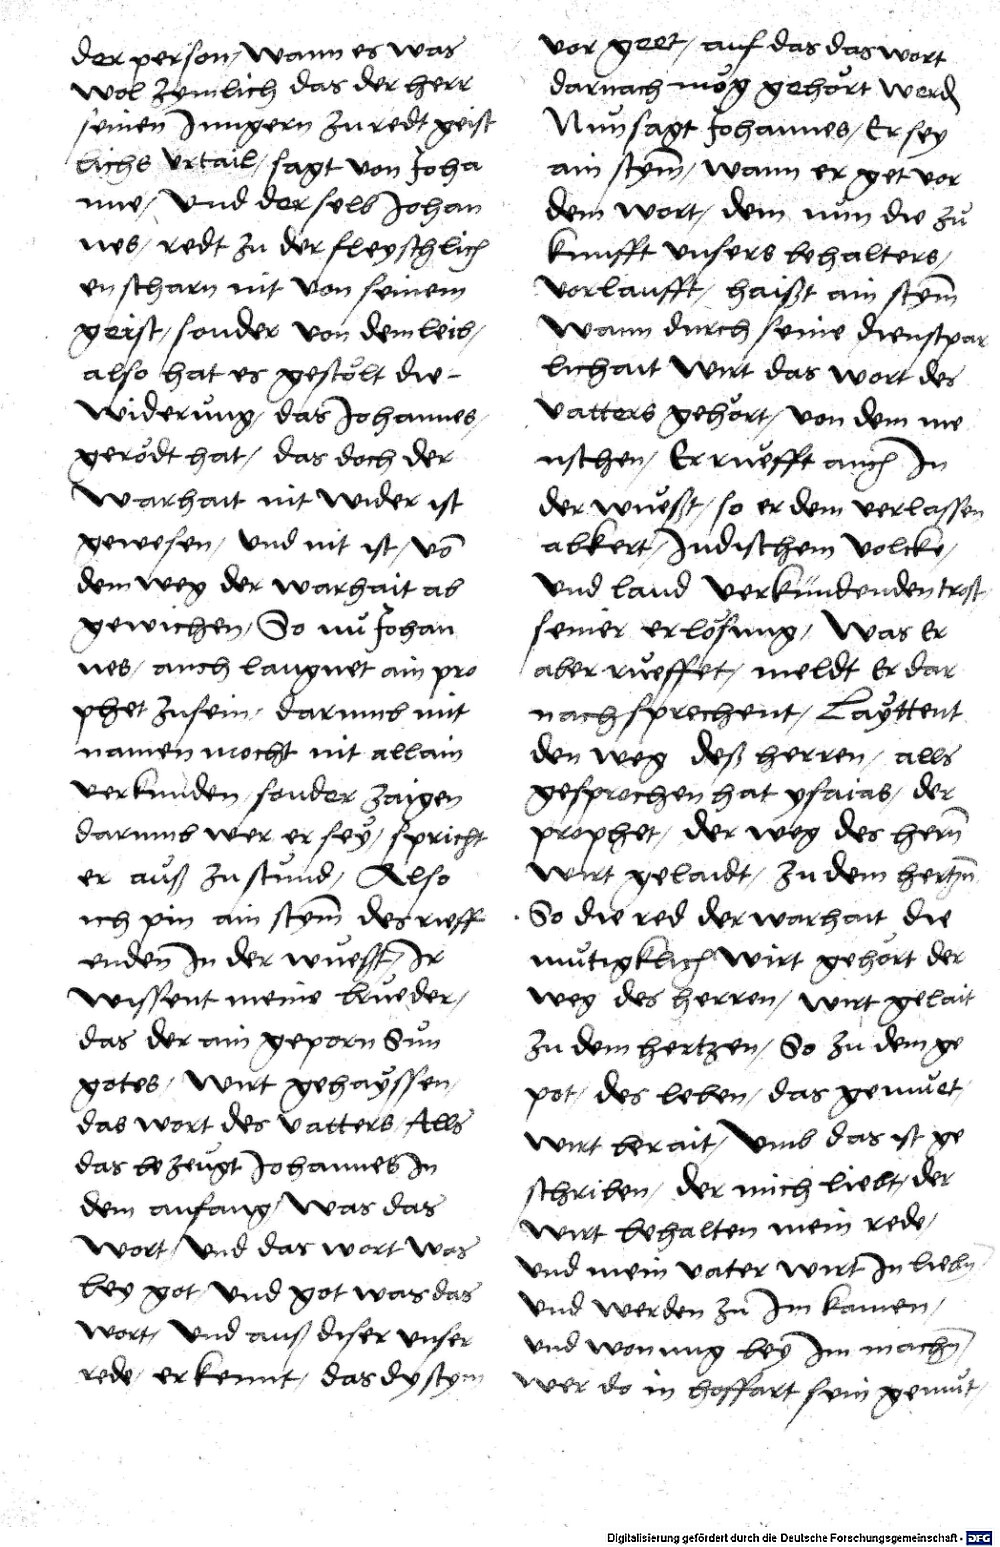 der person / Wann es was
wol zymlich das der herr
seinen Jungern zu redt geist
lichs vrtail / sagt von Joha
nne / Vnd der selb Johan
nes / redt zu der fleyschlich
en scharn nit von seinem
geist / sonder von dem leib /
also hat es gestölt die -
Widerung / das Johannes /
gerödt hat / das doch der
Warhait nit wider ist
gewesen / vnd nit ist / vō
dem weg der warhait ab
gewichen / So nū Johan
nes / auch laugnet ain pro
phet zusein / darumb mit
namen mocht nit allain
verkunden / sonder zaigen
darumb wer er seÿ / spricht
er auß zu stund / Also
ich pin ain stym̄ des rieff
enden In der wuesst / Ir
wissent meine brueder /
das der ain geporn Sun
gotes / Wirt gehaÿssen /
das wort des vatters / Alls
das bezeugt Johannes In
dem anfang / Was das
Wort / vnd das wort was
bey got / vnd got was das
wort / vnd auß diser vnser
rede / erkennt / das dy stym
vor geet / auf das das wort
darnach mög gehört werd
Nun sagt Johannes / Er sey
ain stym̄ / wann er get vor
dem wort / dem nun die zů
kunfft vnsers behalters /
vorlaufft / haißt ain stym̄
Wann durch seine dienstpar
lichait wirt das wort des
vatters gehört / von dem me
nschen / Er ruefft auch In
der wueßt / so er dem verlassen
abkert / Judischem volcke /
vnd land verkündenden trost
seiner erlösung / Was Er
aber rueffet / meldt Er dar
nach sprechent / Layttent
den weg deß herren / alls
gesprochen hat ysaias / der
prophet / der weg des hern̄
wirt gelaidt / zu dem hertzn̄
So die red der warhait die
mutigklich wirt gehört der
weg des herren / wirt gelait
zu dem hertzen / So zu dem ge
pot / des leben / das gemuet /
wirt berait / Vmb das ist ge
schriben / der mich liebt / der
wirt behalten mein rede /
vnd mein vater wirt In liebn̄
vnd werden zu Im kamen /
vnd wonung beÿ Im machn̄ /
wer do in hoffart sein gemüt /
Digitalisierung gefördert durch die Deutsche Forschungsgemeinschaft - DFG